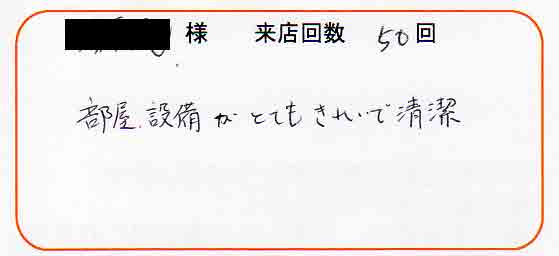 様 来店回数 50回
部屋、設備がとてもきれいで清潔